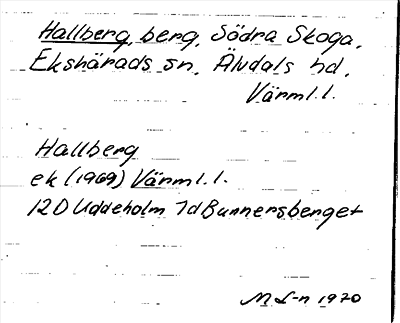 Hallberg, berg, Södra Skoga,
Ekshärads sn, Älvdals hd,
Värml.l.
Hallberg
ek (1969) Värml.l.
12D Uddeholm 7d Bannersberget
M L-n 1970